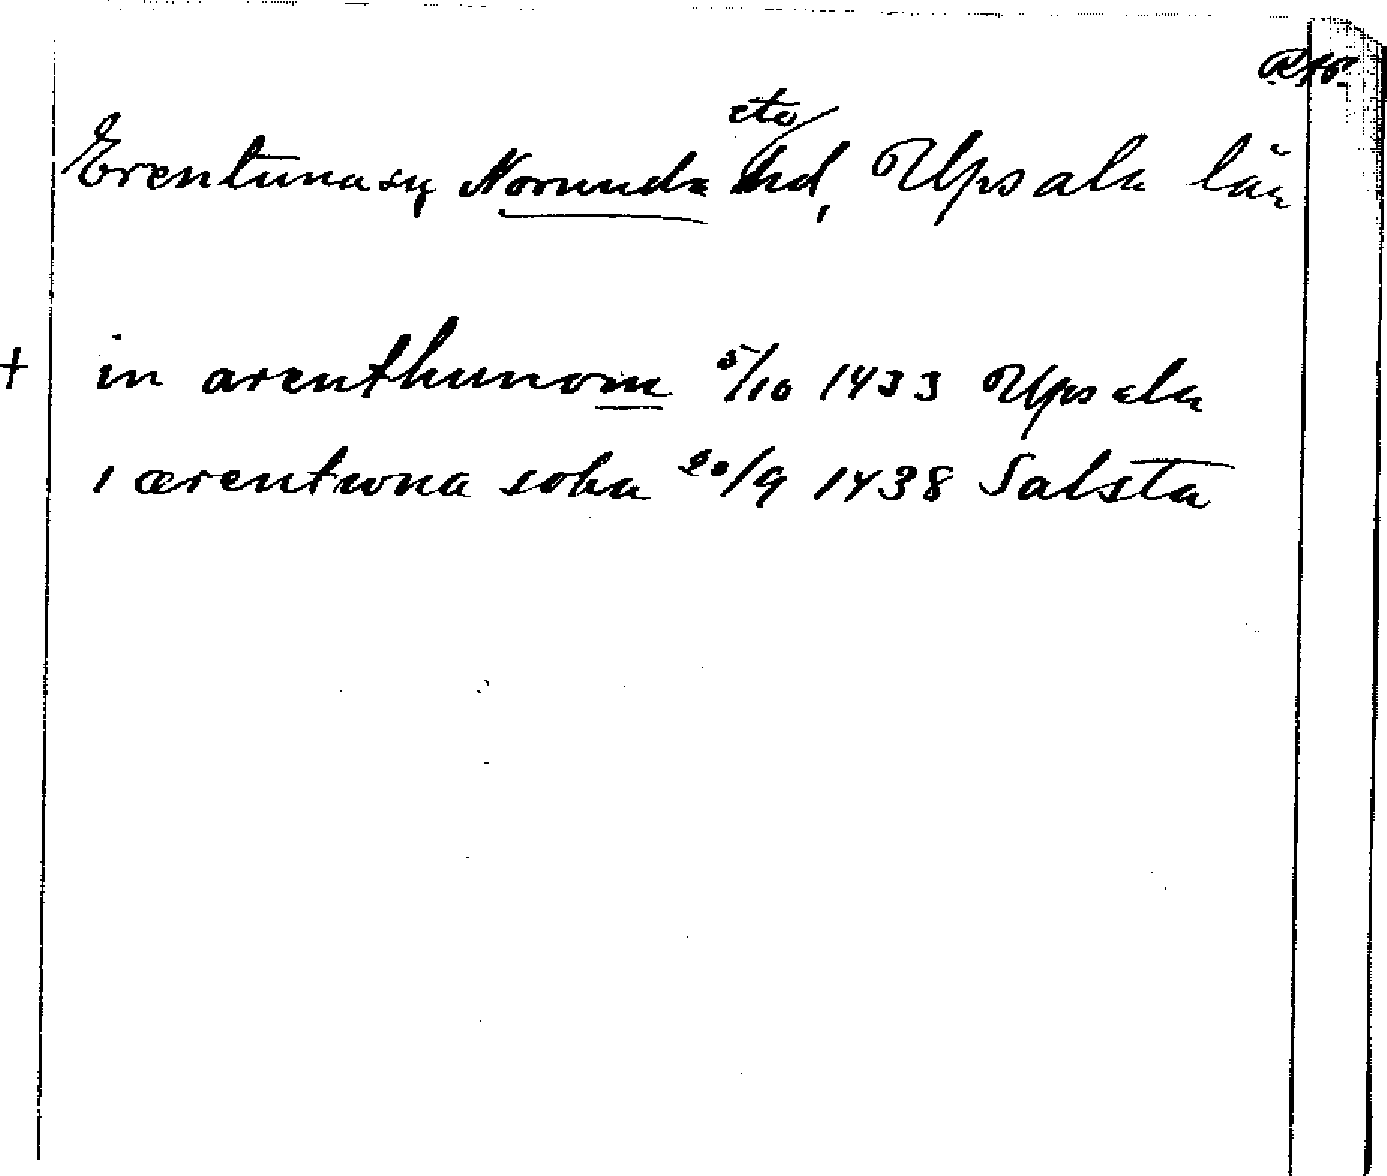 RAp.
etc/
Erentuna sn, Norunda hd, Upsala län
+ in arenthunom 5/10 1433 Upsala
i ærentwna sokn 20/9 1438 Salsta